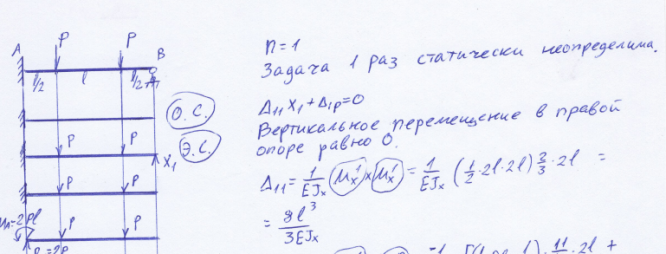 A
P
P
B
l/2
l
l/2
О.С.
P
P
Э.С.
X₁
P
P
Mₐ=2Pl
P
P
n=1
Задача 1 раз статически неопределима.
Δ₁₁X₁+Δ₁p=0
Вертикальное перемещение в правой
опоре равно 0.
Δ₁₁ = 1/EJₓ (Mₓ¹)×(Mₓ¹) = 1/EJₓ (1/2·2l·2l) 2/3·2l =
= 8l³/3EJₓ